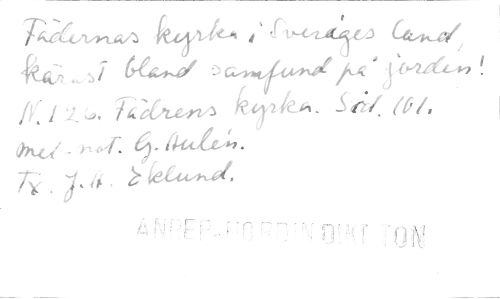 Fädernas kyrka i Sveriges land,
kärast bland samfund på jorden!
N. 126. Fädrens kyrka. Sid. 101.
mel. not. G. Aulén.
Tx. J. A. Eklund.
ANREP-NORDIN DIKT TON